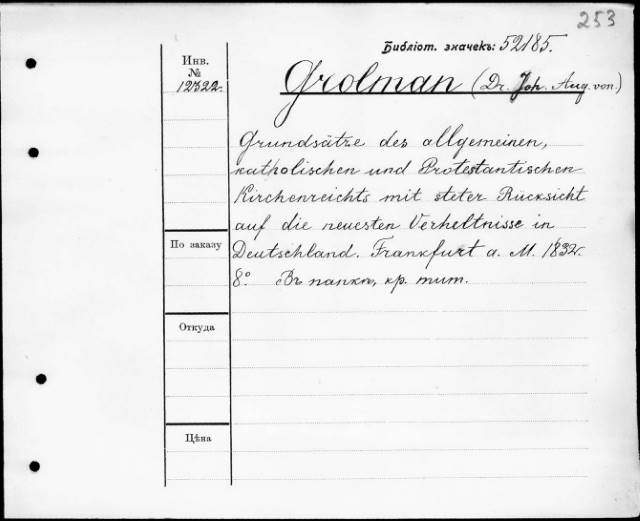 253
Библіот. значекъ: 52185.
Инв.
№
12322.
Grolman (Dr. Joh. Aug. von.)
Grundsätze des allgemeinen,
katholischen und Protestantischen
Kirchenreichts mit steter Rücksicht
auf die neuesten Verheltnisse in
Deutschland. Frankfurt a. M. 1832.
8º. Въ папкѣ, кр. тит.
По заказу
Откуда
Цѣна